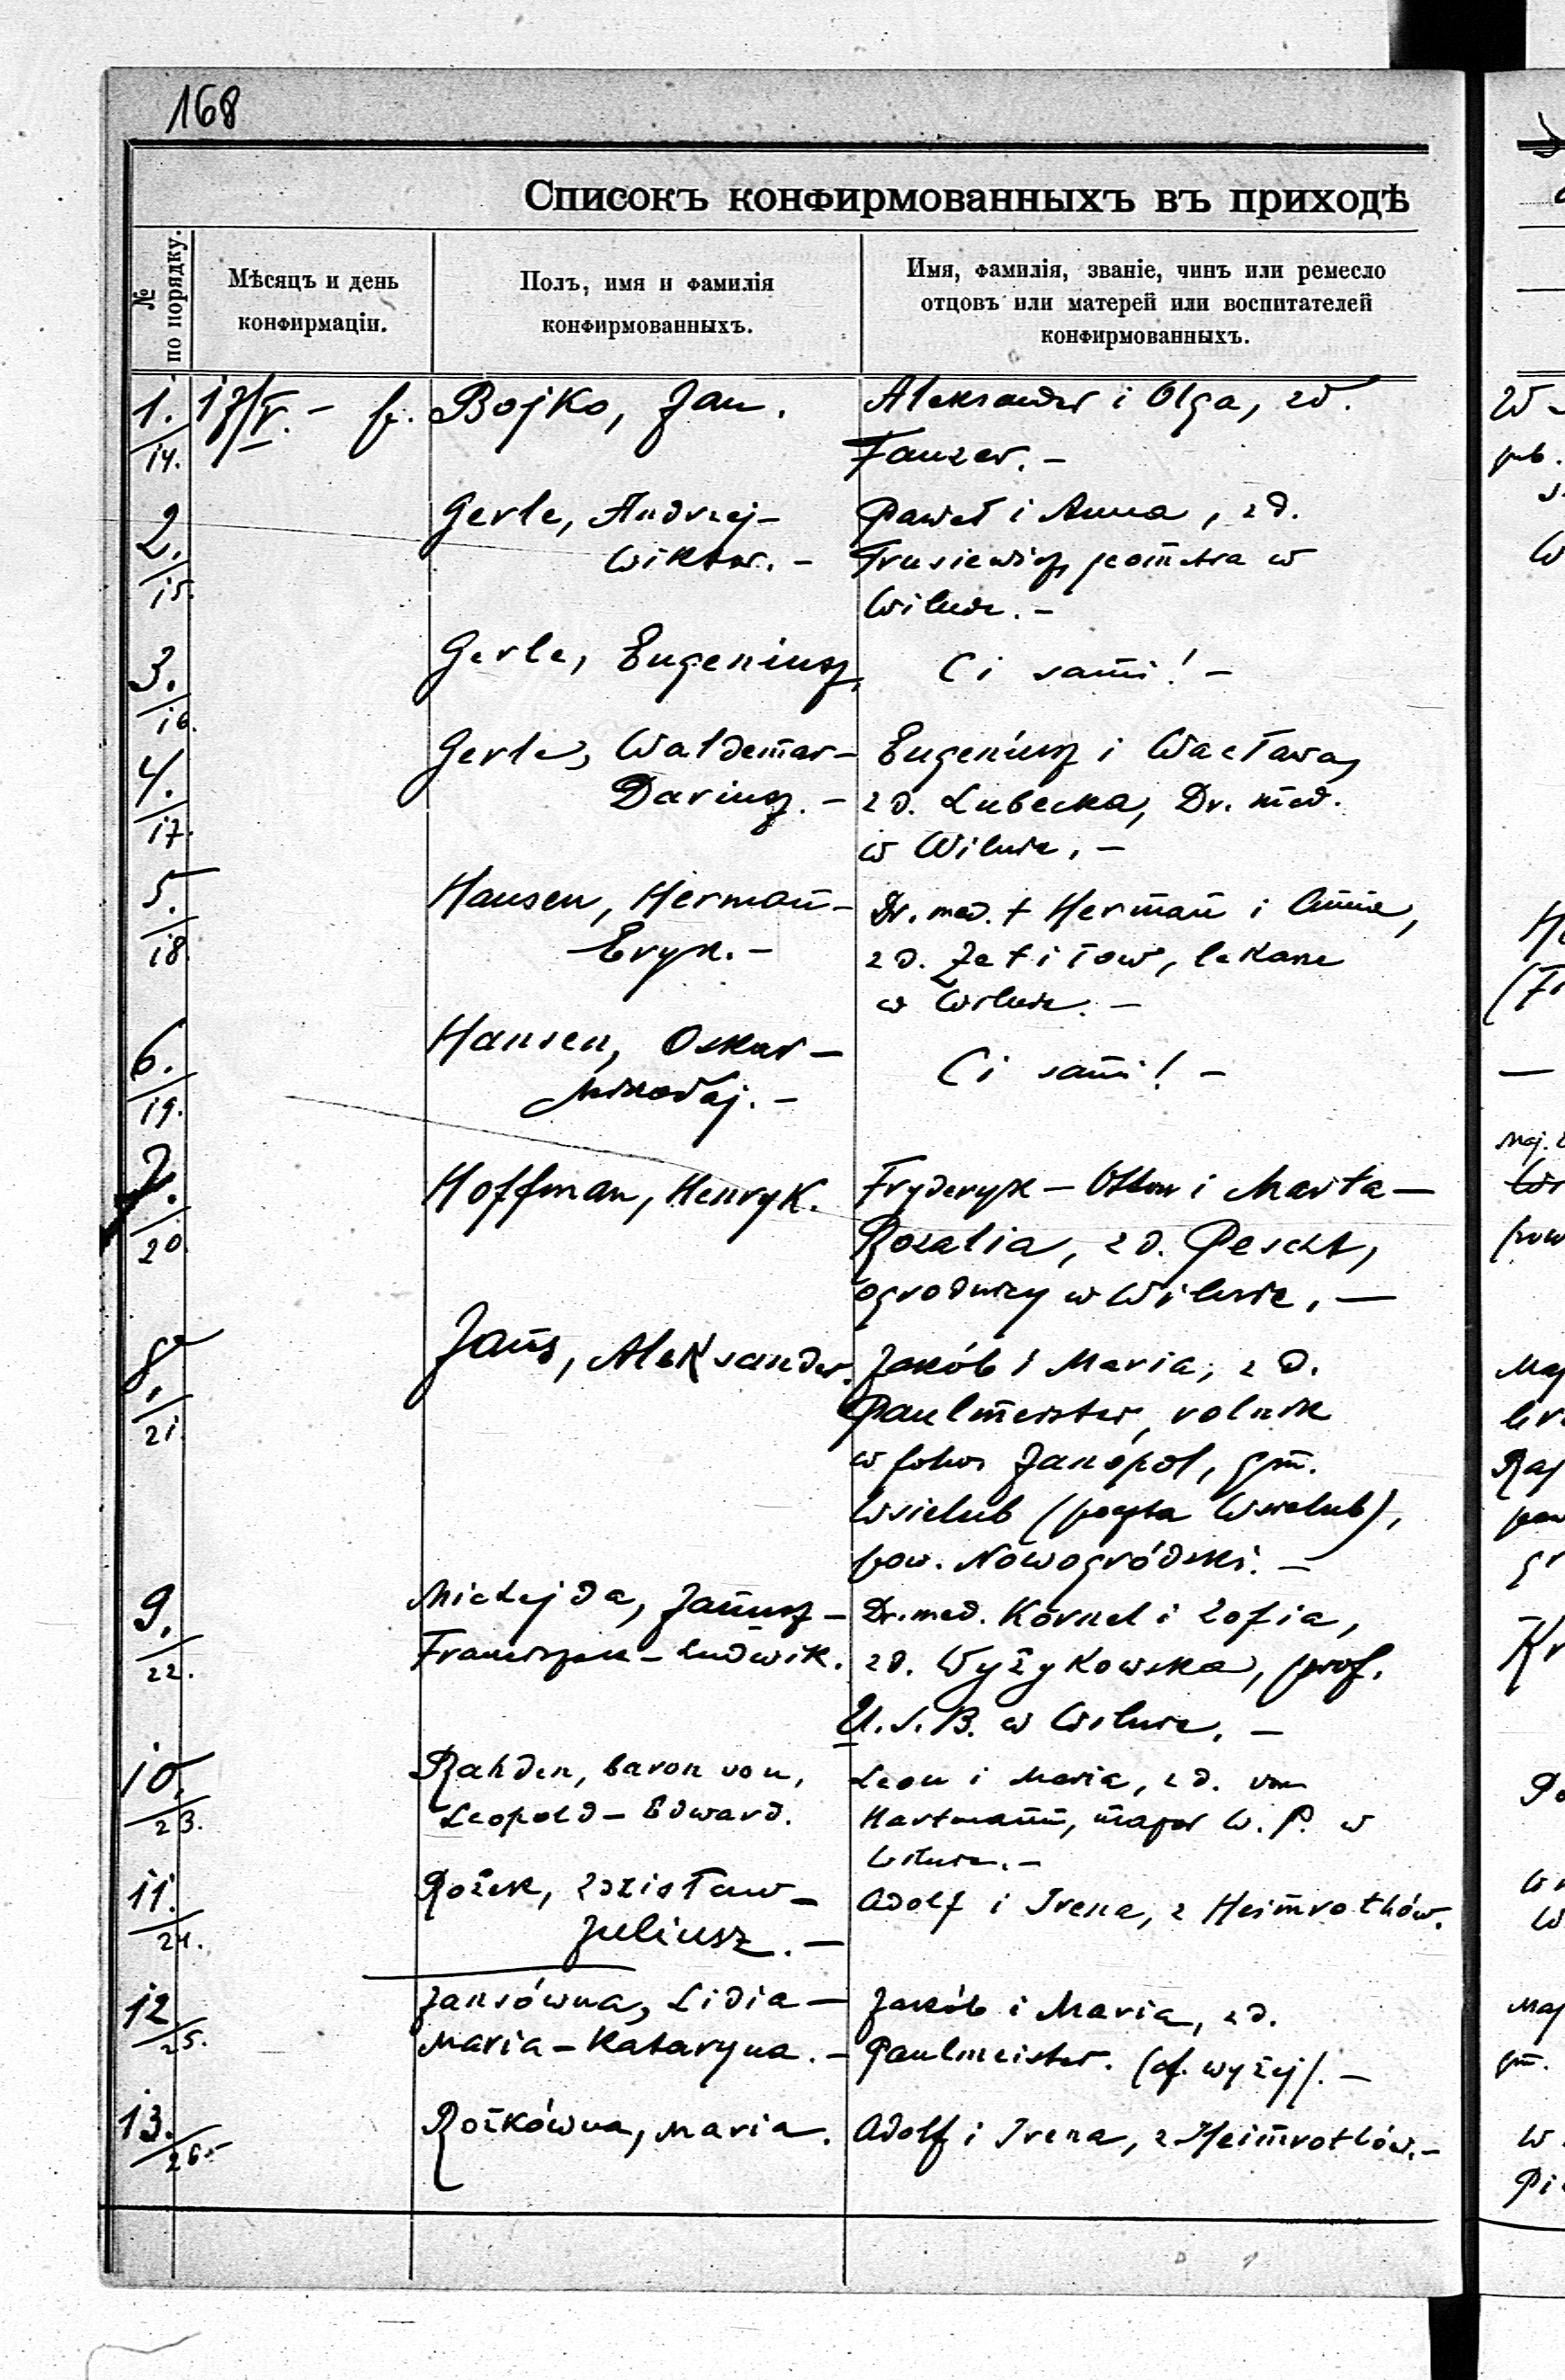 168
Списокъ конфирмованныхъ въ приходѣ
№ по порядку.
Мѣсяцъ и день
конфирмаціи.
Полъ, имя и фамилія
конфирмованныхъ.
Имя, фамилія, званіе, чинъ или ремесло
отцовъ или матерей или воспитателей
конфирмованныхъ.
1./14. 17/V. - Bojko, Jan. Aleksander i Olga, zd.
Tauzer. -
2./15. Gerle, Andrzej- Paweł i Anna, zd.
Wiktor. - Trusiewicz, geometra w
Wilnie. -
3./16. Gerle, Eugeniusz. Ci sami! -
4./17. Gerle, Waldemar- Eugeniusz i Wacława,
Dariusz. - zd. Lubecka, Dr. med.
w Wilnie. -
5./18. Hansen, Herman- Dr. med. † Herman i Anna,
Eryk. - zd. lekarze
w Wilnie. -
6./19. Hansen, Oskar- Ci sami! -
Mikołaj. -
7./20. Hoffman, Henryk. Fryderyk-Otton i Marta-
Rozalia, zd. Pescht,
ogrodnicy w Wilnie. -
8./21. Jans, Aleksander. Jakób i Maria, zd.
Paulmeister, rolnik
w folw. Janopol, gm.
Wsielub (poczta Wsielub),
pow. Nowogródski. -
9./22. Michejda, Janusz- Dr. med. Kornel i Zofia,
Franciszek-Ludwik. zd. Wyżykowska, prof.
U.S.B. w Wilnie. -
10./23. Rahden, baron von, Leon i Maria, zd. von
Leopold-Edward. Hartmann, major W.P. w
Wilnie. -
11./24. Rożek, Zdzisław- Adolf i Irena, z Heimrothów.
Juliusz. -
12/25. Jansówna, Lidia- Jakób i Maria, zd.
Maria-Kataryna. - Paulmeister. (cf. wyżej). -
13./26. Rożkówna, Maria. Adolf i Irena, z Heimrothów. -